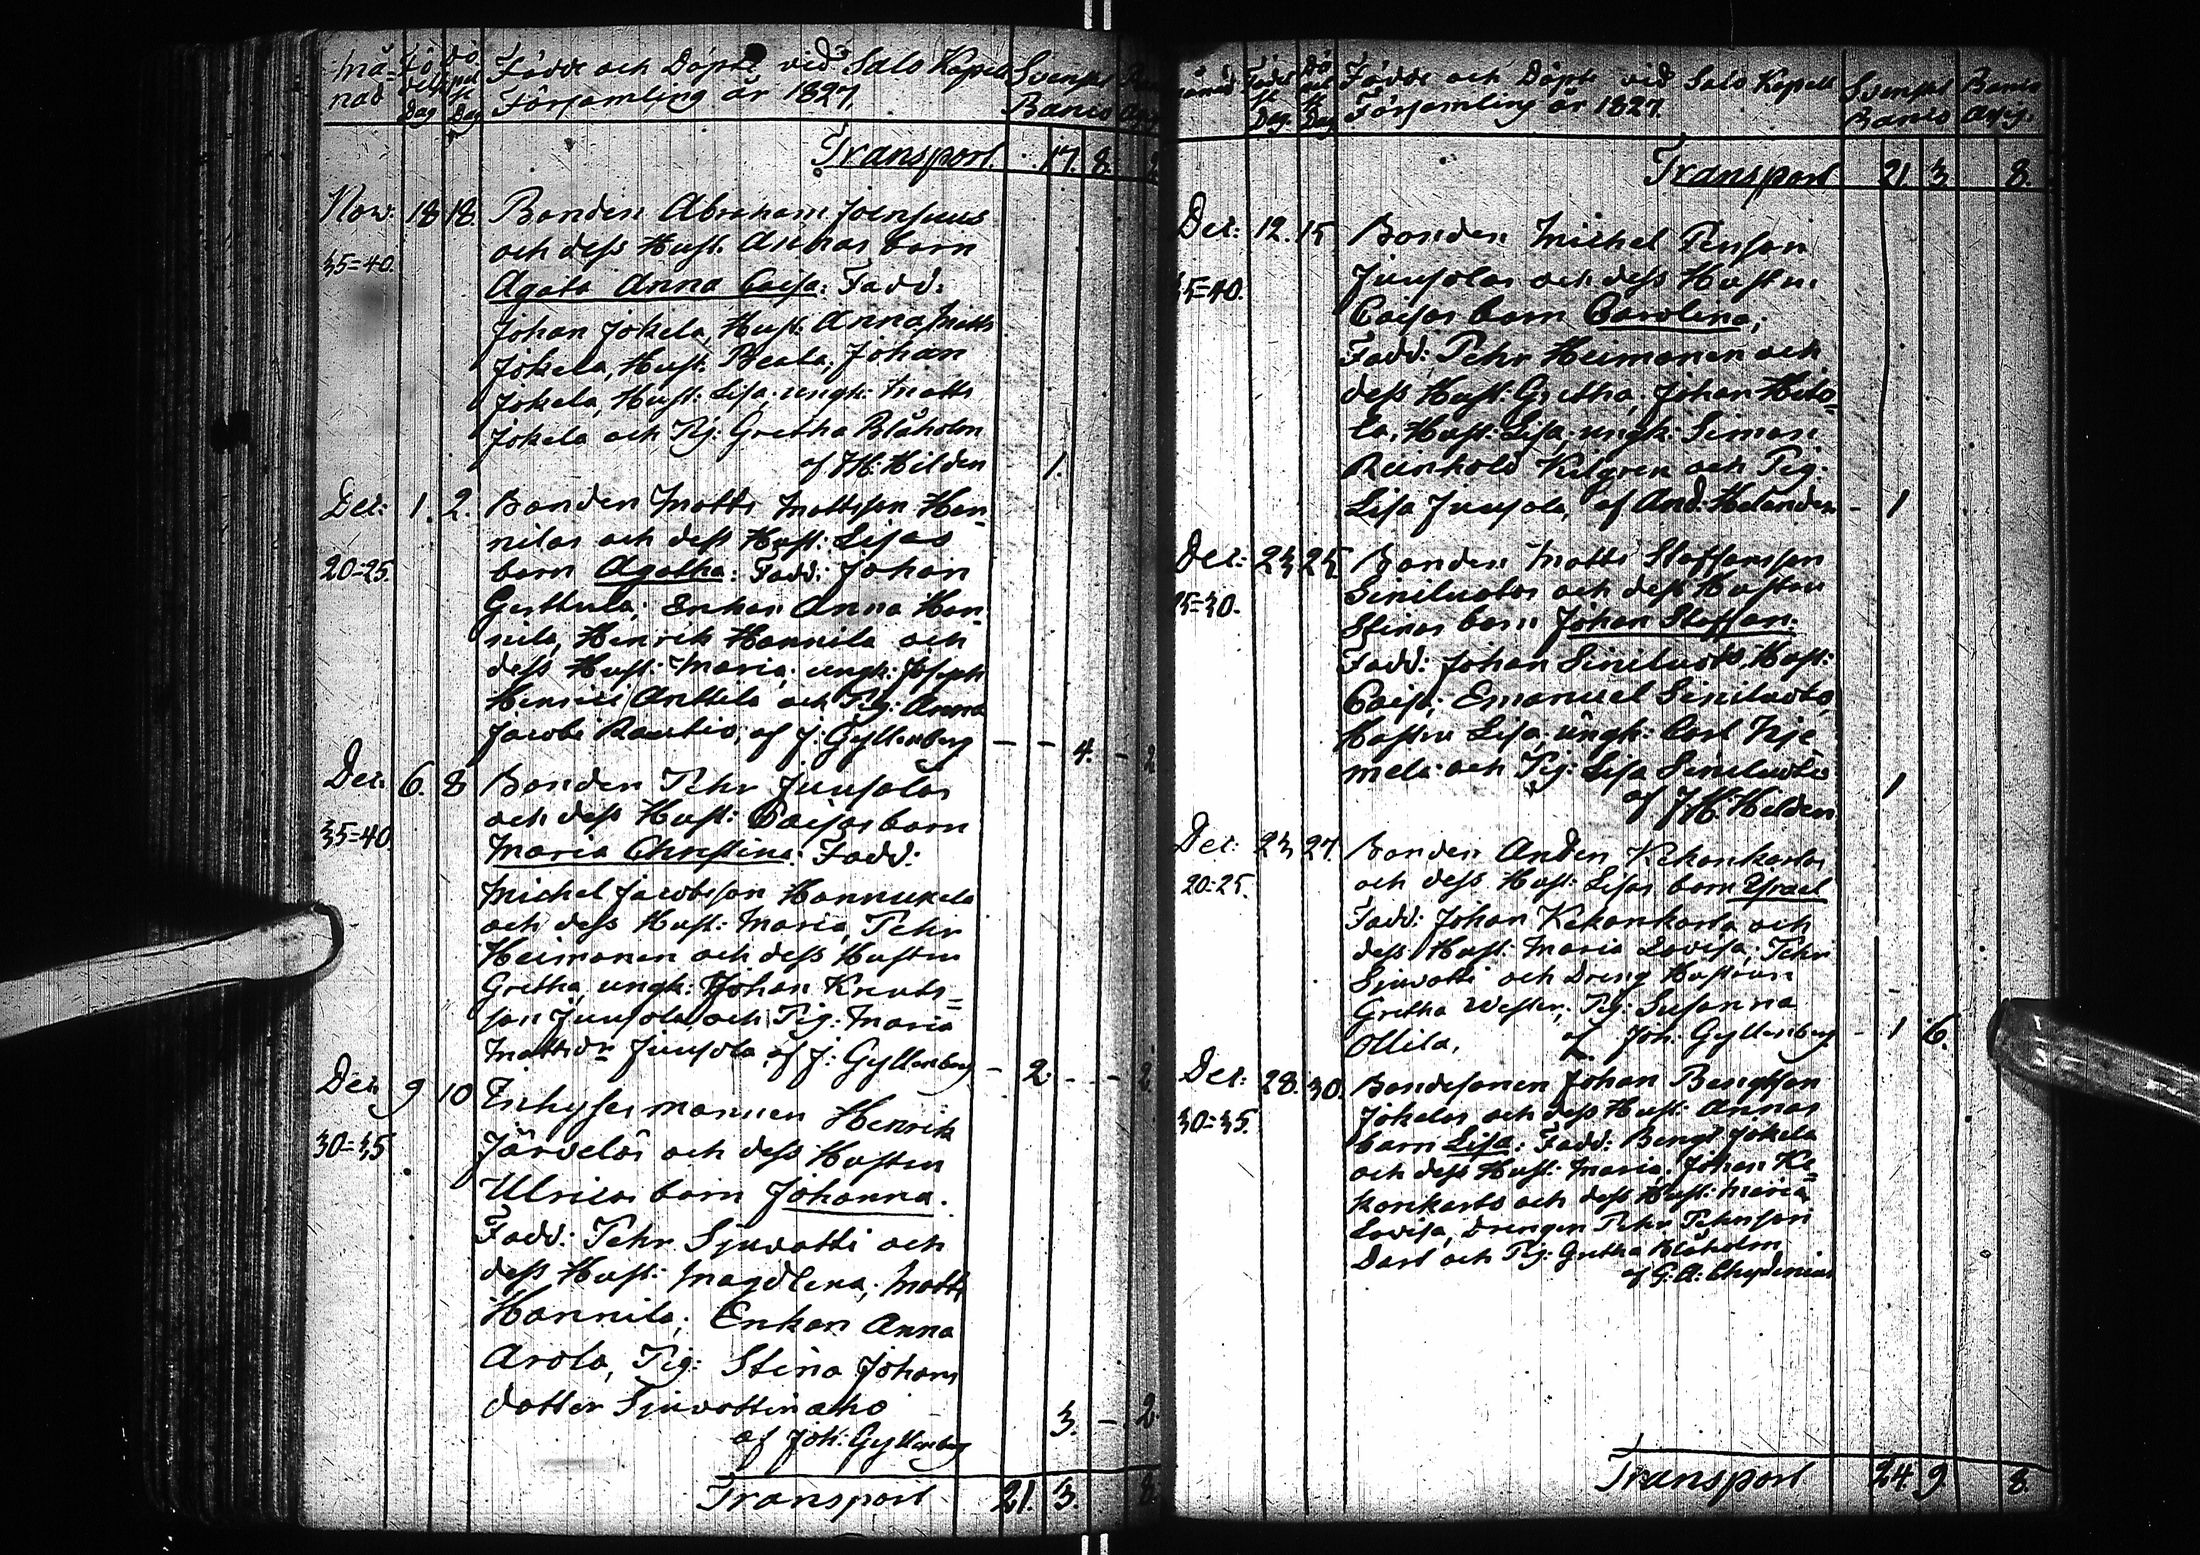 Må- Föd- Dö- Födde och Döpte vid Salo Kapells Svenskt
nad Dag Dag Församling år 1827. Banco
Transport 17. 8. 2
Nov: 18 18. Bonden Abraham Joensuus
och dess Hust: Annas barn
35=40. Agata Anna Caisa: Fadd:
Johan Jokela, Hust: Anna, Matts
Jokela, Hust: Beata, Johan
Jokela, Hust: Lisa, ungk: Matts
Jokela och Pig: Gretha Blåholm
af J.H: Hilden 1.
Dec: 1. 2. Bonden Matts Mattsson Han-
nilas och dess Hust: Lisas
20-25. barn Agatha: Fadd: Johan
Gerttula; Enkan Anna Han-
nila, Henrik Hannila och
dess Hust: Maria; ungk: Joseph
Henrici Anttila och Pig: Anna
Jacobi Rautio, af J: Gyllenberg - - 4. - 2
Dec: 6. 8 Bonden Pehr Juusolas
och dess Hust: Caisas barn
35=40 Maria Christina: Fadd:
Michel Jacobsson Hannukela
och dess Hust: Maria, Pehr
Heimonen och dess Hustru
Gretha, ungk: Johan Kreuts-
son Juusola, och Pig: Maria
Mattsdr Juusola, af J: Gyllenberg - 2. - - 2
Dec: 9 10 Inhysesmannen Henrik
30-35 Järveläs och dess Hustru
Ulricas barn Johanna.
Fadd: Pehr Sjuvatti och
dess Hust: Magdlena; Matts
Hannila; Enkan Anna
Arola, Pig: Stina Johans
dotter Sjuvottinaho
af Joh: Gyllenberg 3. - 2.
Transport 21. 3. 8.
Månad Född Dag. Dag Födde och Döpte vid Salo Kapells Svenskt Banco
Församling år 1827. Banco Assig.
Transport 21. 3. 8.
Dec: 12. 15 Bonden Michel Persson
35=40. Juusolas och dess Hustru
Caisas barn Carolina;
Fadd: Pehr Heimonen och
dess Hust: Gretha; Johan Hito-
la, Hust: Lisa, ungk: Simon
Reinhold Kilgren och Pig:
Lisa Juusola, af And: Helander - 1
Dec: 23 25. Bonden Matts Staffansson
25=30. Siniluotos och dess Hustru
Stinas barn Johan Staffan.
Fadd: Johan Siniluoto, Hust:
Caisa; Emanuel Siniluoto,
Hustru Lisa, ungk: Carl Nie
mela och Pig: Lisa Siniluoto
af J.H: Hilden 1
Dec: 23 27. Bonden Anders Kekonkartas
20=25. och dess Hust: Lisas barn Israel
Fadd: Johan Kekonkarta och
dess Hust: Maria Lovisa; Pehr
Sjuvotti och Dreng Hustrun
Gretha Wester; Pig: Susanna
Ollila, af Joh: Gyllenberg - 1 6.
Dec: 28. 30. Bondesonen Johan Bengtsson
30=35. Jokelas och dess Hust: Annas
barn Lisa: Fadd: Bengt Jokela
och dess Hust: Maria; Johan Ke-
konkarta och dess Hust: Maria
Lovisa, Drengen Pehr Pehrsson
och Pig: Gretha Blåholm
af G: A: Chydenius
Transport 24. 9. 8.